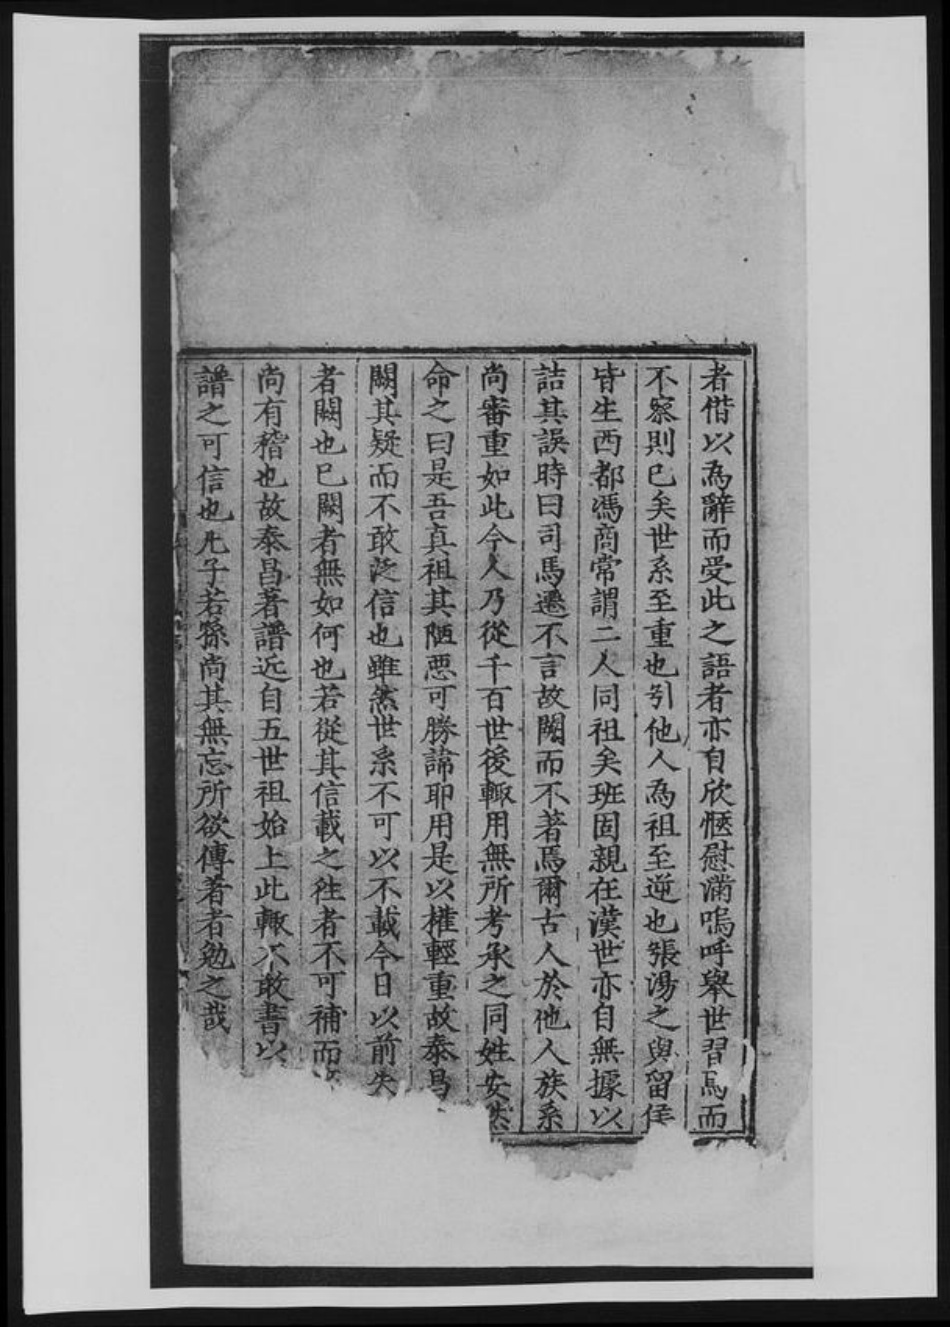 者借以為辭而受此之語者亦自欣愜慰滿嗚呼舉世習焉而
不察則已矣世系至重也引他人為祖至逆也張湯之與留侯
皆生西都馮商常謂二人同祖矣班固親在漢世亦自無據以
詰其誤時曰司馬遷不言故闕而不著焉爾古人於他人族系
尚審重如此今人乃從千百世後輙用無所考承之同姓安然
命之曰是吾真祖其陋惡可勝諦耶用是以權輕重故泰昌
闕其疑而不敢泛信也雖然世系不可以不載今日以前失
者闕也已闕者無如何也若從其信載之徃者不可補而
尚有稽也故泰昌著譜近自五世祖始上此輙不敢書以
譜之可信也凢子若孫尚其無忘所欲傳著者勉之哉